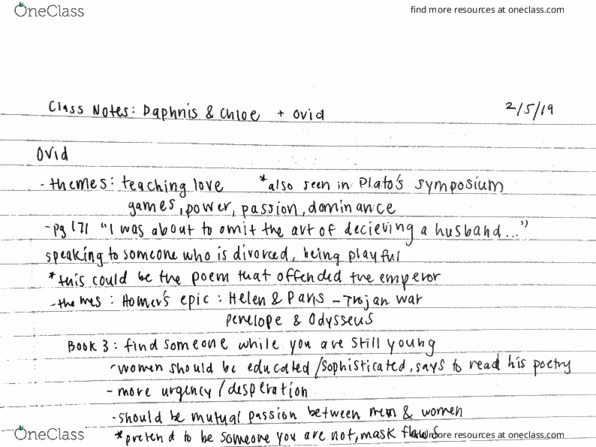 OneClass
find more resources at oneclass.com
Class Notes: Daphnis & Chloe + Ovid 2/5/19
Ovid
- themes: teaching love *also seen in Plato's symposium
games, power, passion, dominance
- pg 171 "I was about to omit the art of decieving a husband..."
speaking to someone who is divorced, being playful
*this could be the poem that offended the emperor
- themes: Homer's epic: Helen & Paris - Trojan war
Penelope & Odysseus
Book 3: find someone while you are still young
- women should be educated/sophisticated, says to read his poetry
- more urgency/desperation
- should be mutual passion between men & women
*pretend to be someone you are not, mask flaws
OneClass
find more resources at oneclass.com